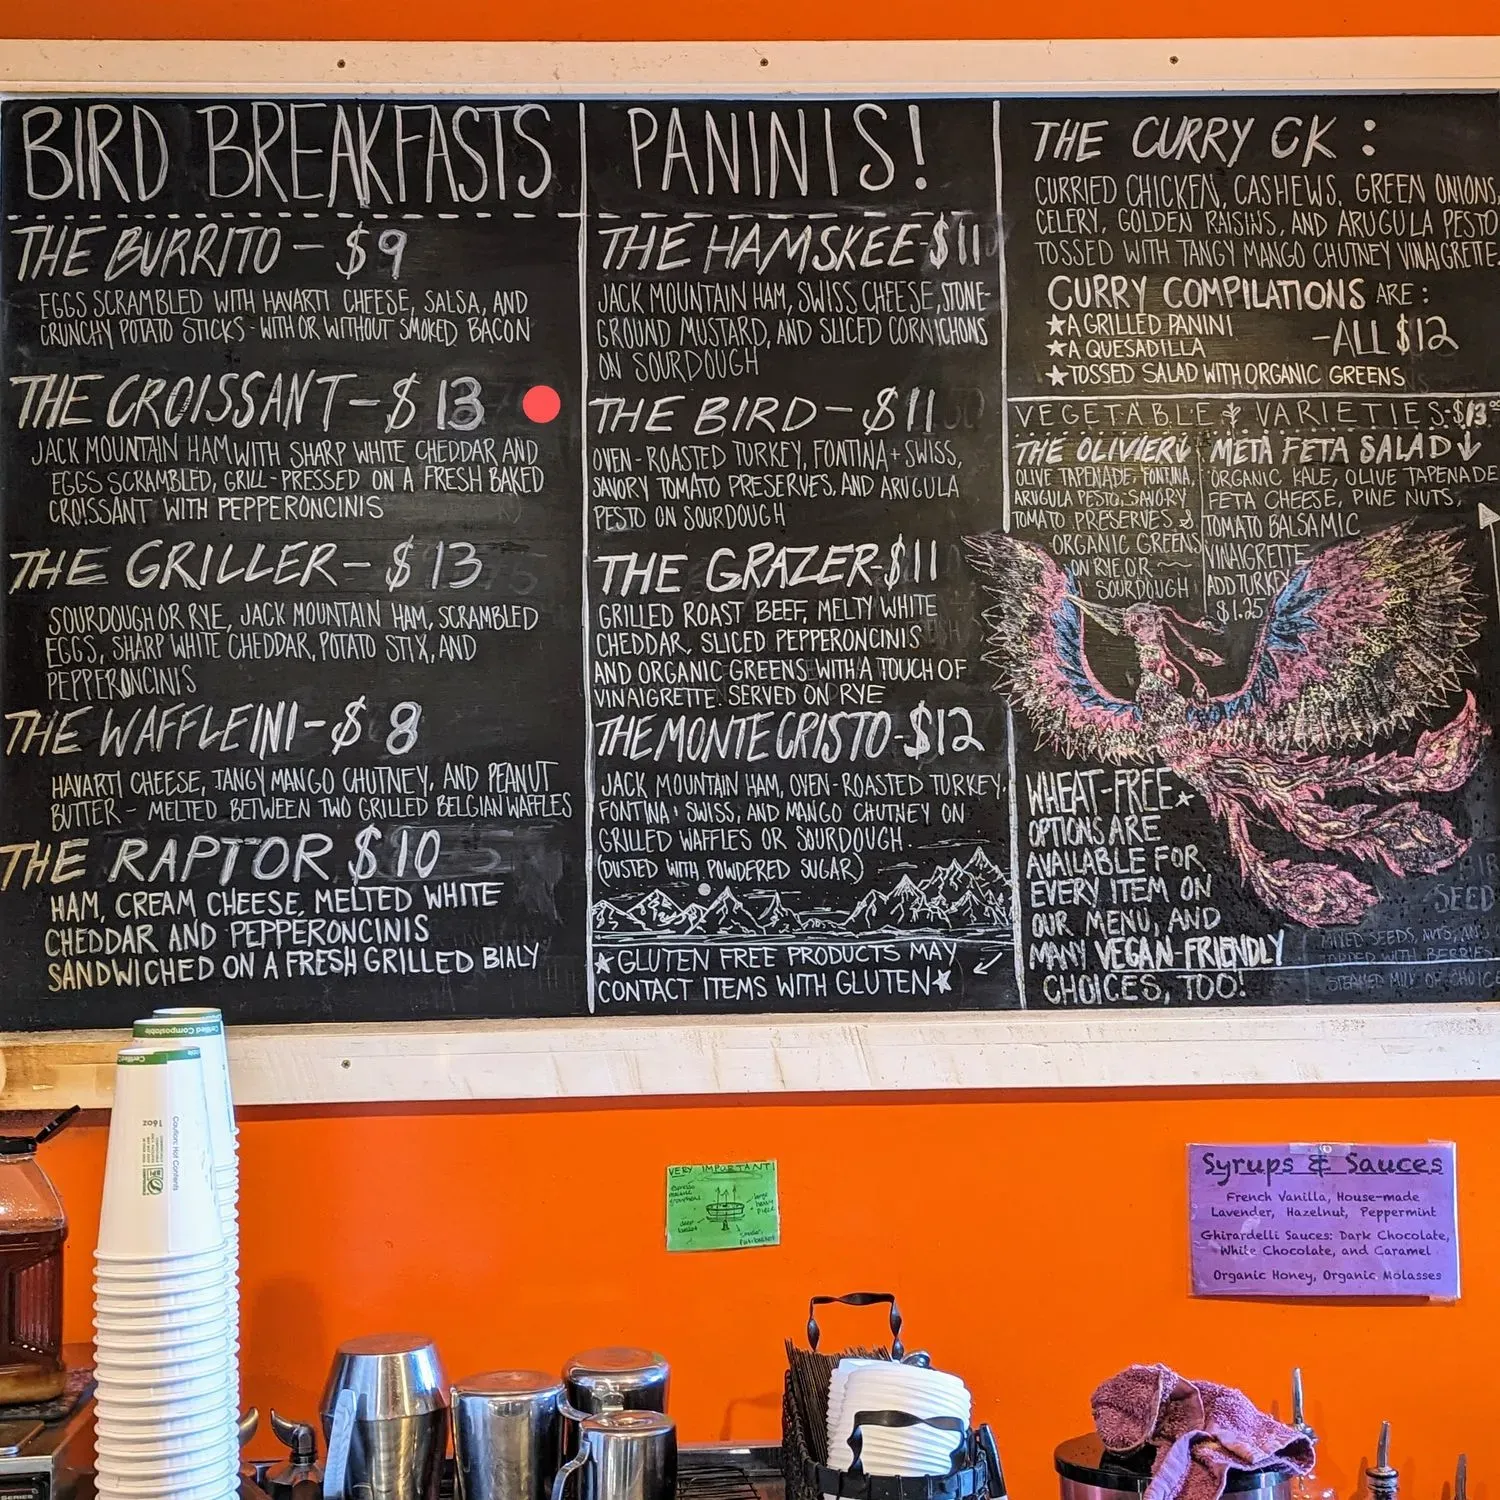 BIRD BREAKFASTS
THE BURRITO - $9
EGGS SCRAMBLED WITH HAVARTI CHEESE, SALSA, AND
CRUNCHY POTATO STICKS - WITH OR WITHOUT SMOKED BACON
THE CROISSANT - $13
JACK MOUNTAIN HAM WITH SHARP WHITE CHEDDAR AND
EGGS SCRAMBLED, GRILL-PRESSED ON A FRESH BAKED
CROISSANT WITH PEPPERONCINIS
THE GRILLER - $13
SOURDOUGH OR RYE, JACK MOUNTAIN HAM, SCRAMBLED
EGGS, SHARP WHITE CHEDDAR, POTATO STIX, AND
PEPPERONCINIS
THE WAFFLEINI - $8
HAVARTI CHEESE, TANGY MANGO CHUTNEY, AND PEANUT
BUTTER - MELTED BETWEEN TWO GRILLED BELGIAN WAFFLES
THE RAPTOR $10
HAM, CREAM CHEESE, MELTED WHITE
CHEDDAR AND PEPPERONCINIS
SANDWICHED ON A FRESH GRILLED BIALY
PANINIS!
THE HAMSKEE - $11
JACK MOUNTAIN HAM, SWISS CHEESE, STONE-
GROUND MUSTARD, AND SLICED CORNICHONS
ON SOURDOUGH
THE BIRD - $11
OVEN-ROASTED TURKEY, FONTINA + SWISS,
SAVORY TOMATO PRESERVES, AND ARUGULA
PESTO ON SOURDOUGH
THE GRAZER - $11
GRILLED ROAST BEEF, MELTY WHITE
CHEDDAR, SLICED PEPPERONCINIS
AND ORGANIC GREENS WITH A TOUCH OF
VINAIGRETTE. SERVED ON RYE
THE MONTE CRISTO - $12
JACK MOUNTAIN HAM, OVEN-ROASTED TURKEY,
FONTINA + SWISS, AND MANGO CHUTNEY ON
GRILLED WAFFLES OR SOURDOUGH.
(DUSTED WITH POWDERED SUGAR)
★GLUTEN FREE PRODUCTS MAY
CONTACT ITEMS WITH GLUTEN★
THE CURRY CK:
CURRIED CHICKEN, CASHEWS, GREEN ONIONS,
CELERY, GOLDEN RAISINS, AND ARUGULA PESTO
TOSSED WITH TANGY MANGO CHUTNEY VINAIGRETTE.
CURRY COMPILATIONS ARE:
★A GRILLED PANINI
★A QUESADILLA
-ALL $12
★TOSSED SALAD WITH ORGANIC GREENS
VEGETABLE VARIETIES-$13
THE OLIVIERI
OLIVE TAPENADE, FONTINA,
ARUGULA PESTO, SAVORY
TOMATO PRESERVES &
ORGANIC GREENS
ON RYE OR
SOURDOUGH
META FETA SALAD
ORGANIC KALE, OLIVE TAPENADE
FETA CHEESE, PINE NUTS,
TOMATO BALSAMIC
VINAIGRETTE
ADD TURKEY
$1.25
WHEAT-FREE★
OPTIONS ARE
AVAILABLE FOR
EVERY ITEM ON
OUR MENU, AND
MANY VEGAN-FRIENDLY
CHOICES, TOO!
SEED
MIXED SEEDS, NUTS, AND
TOPPED WITH BERRIES
STEAMED MILK OF CHOICE
Certified Compostable
Caution: Hot Contents
16oz
VERY IMPORTANT!
Syrups & Sauces
French Vanilla, House-made
Lavender, Hazelnut, Peppermint
Ghirardelli Sauces: Dark Chocolate,
White Chocolate, and Caramel
Organic Honey, Organic Molasses